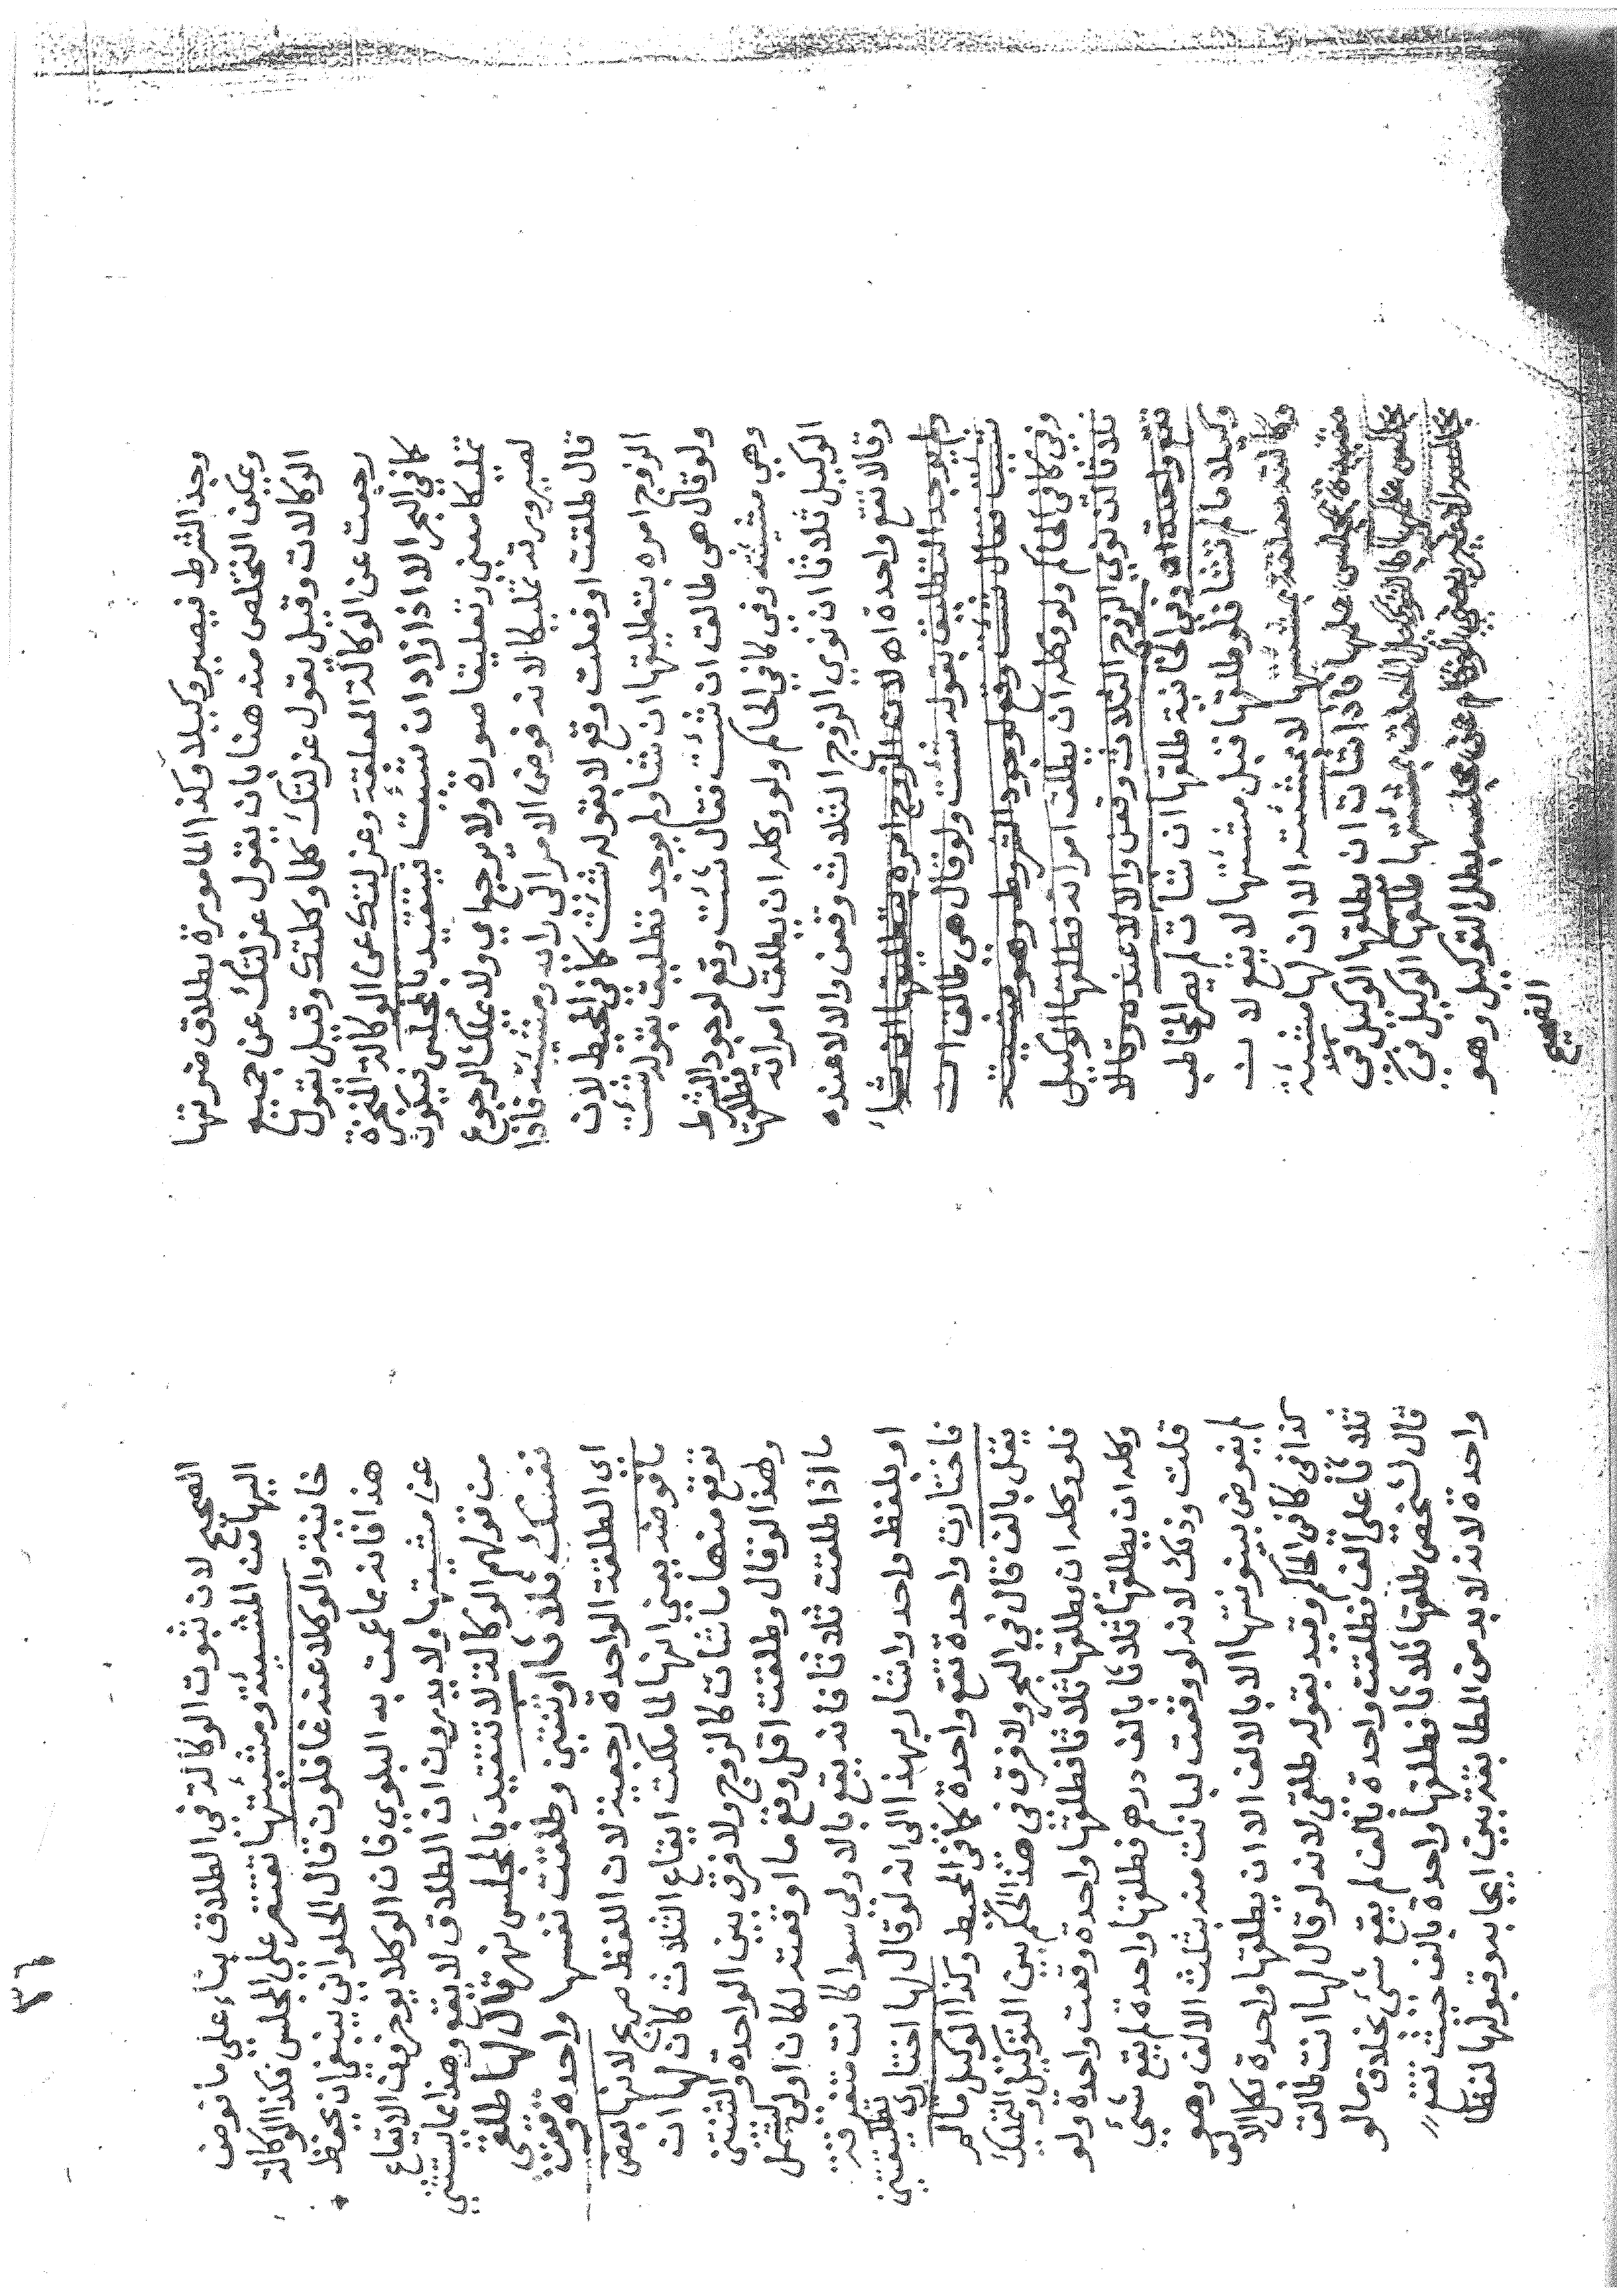 وجد الشرط فيصير وكيلا وكذا لمامورة بطلاق ضرتها
ويمكن التخلص منه هنا بان يقول عزلتك عن جميع
الوكالات وقيل يقول عزلتك كلما وكلتك وقيل يقول
رجعت عن الوكالة المعلقة وعزلتك عن الوكالة المنجزة
كافي البحر الا اذا زاد ان شئت فيتقيد بالمجلس فيكون
تمليكا معنى وتعليقا صورة ولا يرجع اي ولا يملك الرجوع
لصيرورته تمليكا لانه فوض الامر الى رايه ومشيئته فاذا
قال طلقت او فعلت وقع لا بقوله شئت كافي المحيط لان
الزوج امره بتطليقها ان شاء ولم يوجد تطليق بقوله شئت
ولو قال هى طالق ان شئت فقال شئت وقع لوجود الشرط
وهي مشيئته وفي كافي الحاكم ولو وكله ان يطلق امراته فطلقها
الوكيل ثلاثا ان نوي الزوج الثلاث وقعن والا لا عنده
وقالا تقع واحدة اه لان الزوج امره بتطليقها ان شاء
ولم يوجد التطليق بقوله شئت ولو قال هى طالق ان
شئت فقال شئت وقع لوجود الشرط وهو مشيئته
وفي كافي الحاكم ولو وكله ان يطلق امراته فطلقها الوكيل
ثلاثا ان نوي الزوج الثلاث وقعن والا لا عنده وقالا
تقع واحدة اه وفي الخانية طلقها ان شاءت لم يصر المخاطب
وكيلا ما لم تشا فلو طلقها قبل مشئتها لا يقع لان
وكالته معلقة بمشيئتها لا مشئته الا ان لها مشئة
مقيدة بمجلس علمها فاذا شاءت ان يطلقها الوكيل في
مجلس علمها
طلقها الوكيل في
بطل التوكيل وهو
الصحيح
٣٦
الصحيح لان ثبوت الوكالة في الطلاق بناء على ما فوض
اليها من المشيئة ومشيئتها تقتصر على المجلس فكذا الوكالة
خانية والوكلاء عنه غافلون قال الحلواني ينبغي ان يحفظ
هذا فانه مما عمت به البلوي فان الوكلا يوخرون الايقاع
عن مشيئتها ولا يدرون ان الطلاق لا يقع وهذا مما يستثني
من قولهم الوكالة لا تتقيد بالمجلس نهر قال لها طلقي
نفسك ثلاثا او ثنتين وطلقت نفسها واحدة وقعت
اي الطلقة الواحدة رجعية لان اللفظ صريح لانها بعض
ما فوضه يعني انها لما ملكت ايقاع الثلاث كان لها ان
توقع منها ما شاءت كالزوج ولا فرق بين الواحدة والثنتين
ولهذا لو قال وطلقت اقل وقع ما اوقعته لكان اولى ليشمل
ما اذا طلقت ثلاثا فانه يقع بالاولى سواء كانت متفرقة
او بلفظ واحد واشار بهذا الى انه لو قال لها اختاري تطليقتين
فاختارت واحدة تقع واحدة كما في المحيط وكذا الوكيل ما لم
يقل بالف قال في البحر ولا فرق في هذا الحكم بين التوكيل والتمليك
فلو وكله ان يطلقها ثلاثا فطلقها واحدة وقعت واحدة ولو
وكله ان يطلقها ثلاثا بالف درهم فطلقها واحدة لم يقع شئ
قلت وذلك لانه لو وقعت لبانت منه بثلث الالف وهو
لم يفوض بينونتها الا بالالف الا ان يطلقها واحدة بكل الالف
كذا في كافي الحاكم وقيد بقوله طلقي لانه لو قال لها انت طالق
ثلاثا على الف فطلقت واحدة بالف لم يقع شئ بخلاف ما لو
قال لشخص طلقها ثلاثا فطلقها واحدة بالف حيث تقع
واحدة لانه لا بد من المطابقة بين ايجابه وقبولها لفظا